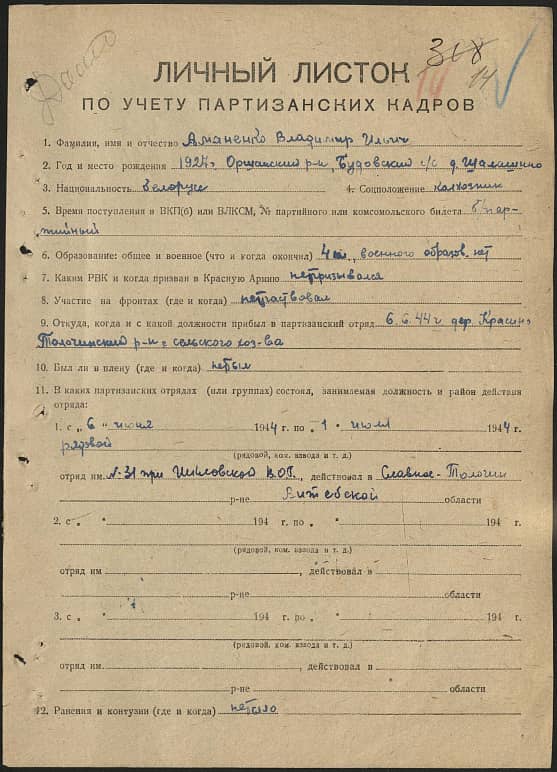 318
14
ЛИЧНЫЙ ЛИСТОК
ПО УЧЕТУ ПАРТИЗАНСКИХ КАДРОВ
1. Фамилия, имя и отчество Аманенко Владимир Ильич
2. Год и место рождения 1927г. Оршанский р-н, Будовский с/с д. Шалашино
3. Национальность белорус 4. Соцположение колхозник
5. Время поступления в ВКП(б) или ВЛКСМ, № партийного или комсомольского билета б/пар-
тийный
6. Образование: общее и военное (что и когда окончил) 4 кл, военного образов. нет
7. Каким РВК и когда призван в Красную Армию непризывался
8. Участие на фронтах (где и когда) неучаствовал
9. Откуда, когда и с какой должности прибыл в партизанский отряд 6.6.44г дер. Красино
Толочинский р-н с сельского хоз-ва
10. Был ли в плену (где и когда) небыл
11. В каких партизанских отрядах (или группах) состоял, занимаемая должность и район действия
отряда:
1. с „ 6 " июня 1944 г. по „ 1 " июля 1944 г.
рядовой
(рядовой, ком. взвода и т. д.)
отряд им. №31 при Шкловской В.О.Г., действовал в Славное-Толочин
р-не Витебской области
2. с „ " 194 г. по „ " 194 г.
(рядовой, ком. взвода и т. д.)
отряд им , действовал в
р-не области
3. с „ " 194 г. по „ " 194 г.
(рядовой, ком. взвода и т. д.)
отряд им. , действовал в
р-не области
12. Ранения и контузии (где и когда) небыло